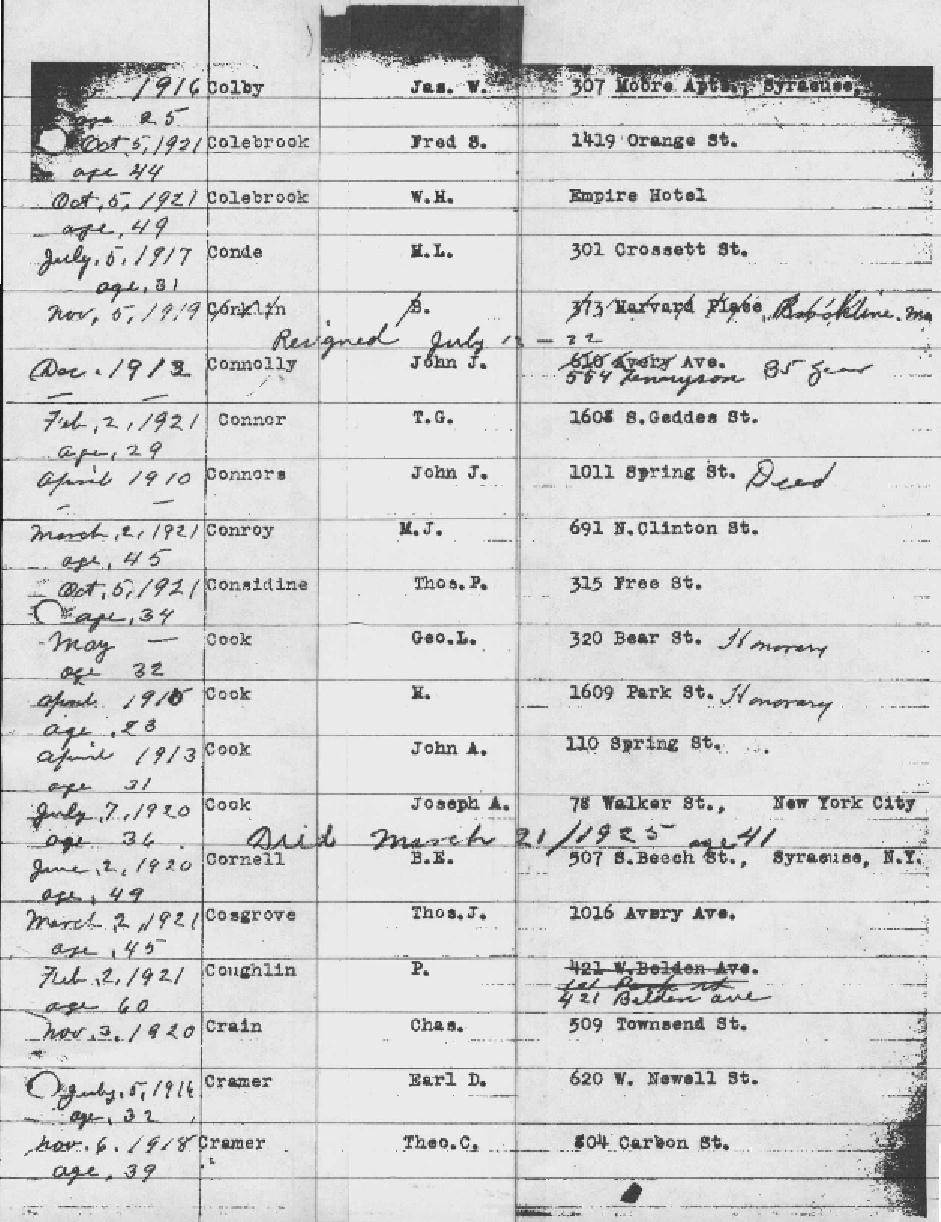 1916 Colby Jas. W. 307 Moore Apts., Syracuse,
age 25
Oct 5, 1921 Colebrook Fred S. 1419 Orange St.
age 44
Oct, 5, 1921 Colebrook W.H. Empire Hotel
age, 49
July, 5, 1917 Conde M.L. 301 Crossett St.
age, 31
Nov, 5, 1919 Conklin S. 373 Harvard Place, Brookline, Ma
Resigned July 12 - 22
Dec. 1913 Connolly John J. 610 Avery Ave.
564 Tennyson 35 Year
Feb, 2, 1921 Connor T.G. 1608 S.Geddes St.
age, 29
April 1910 Connors John J. 1011 Spring St. Dead
March, 2, 1921 Conroy M.J. 691 N.Clinton St.
age, 45
Oct, 5, 1921 Considine Thos.P. 315 Free St.
age, 34
May — Cook Geo.L. 320 Bear St. Honorary
age 32
April 1915 Cook H. 1609 Park St. Honorary
age, 23
April 1913 Cook John A. 110 Spring St.
age 31
July, 7, 1920 Cook Joseph A. 78 Walker St., New York City
age 36. Died March 21/1925 age 41
June, 2, 1920 Cornell B.E. 507 S.Beech St., Syracuse, N.Y.
age, 49
March 2, 1921 Cosgrove Thos.J. 1016 Avery Ave.
age, 45
Feb, 2, 1921 Coughlin P. 421 W.Belden Ave.
Park st
age 60 421 Belden ave
Nov. 3, 1920 Crain Chas. 509 Townsend St.
July, 5, 1916 Cramer Earl D. 620 W. Newell St.
age, 32
Nov. 6, 1918 Cramer Theo.C. 504 Carbon St.
age, 39